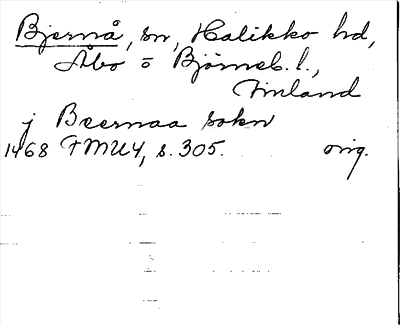 Bjernå, sn, Halikko hd,
Åbo o Björneb. l.,
Finland
j Beernaa sokn
1468 FMU4, s. 305. orig.